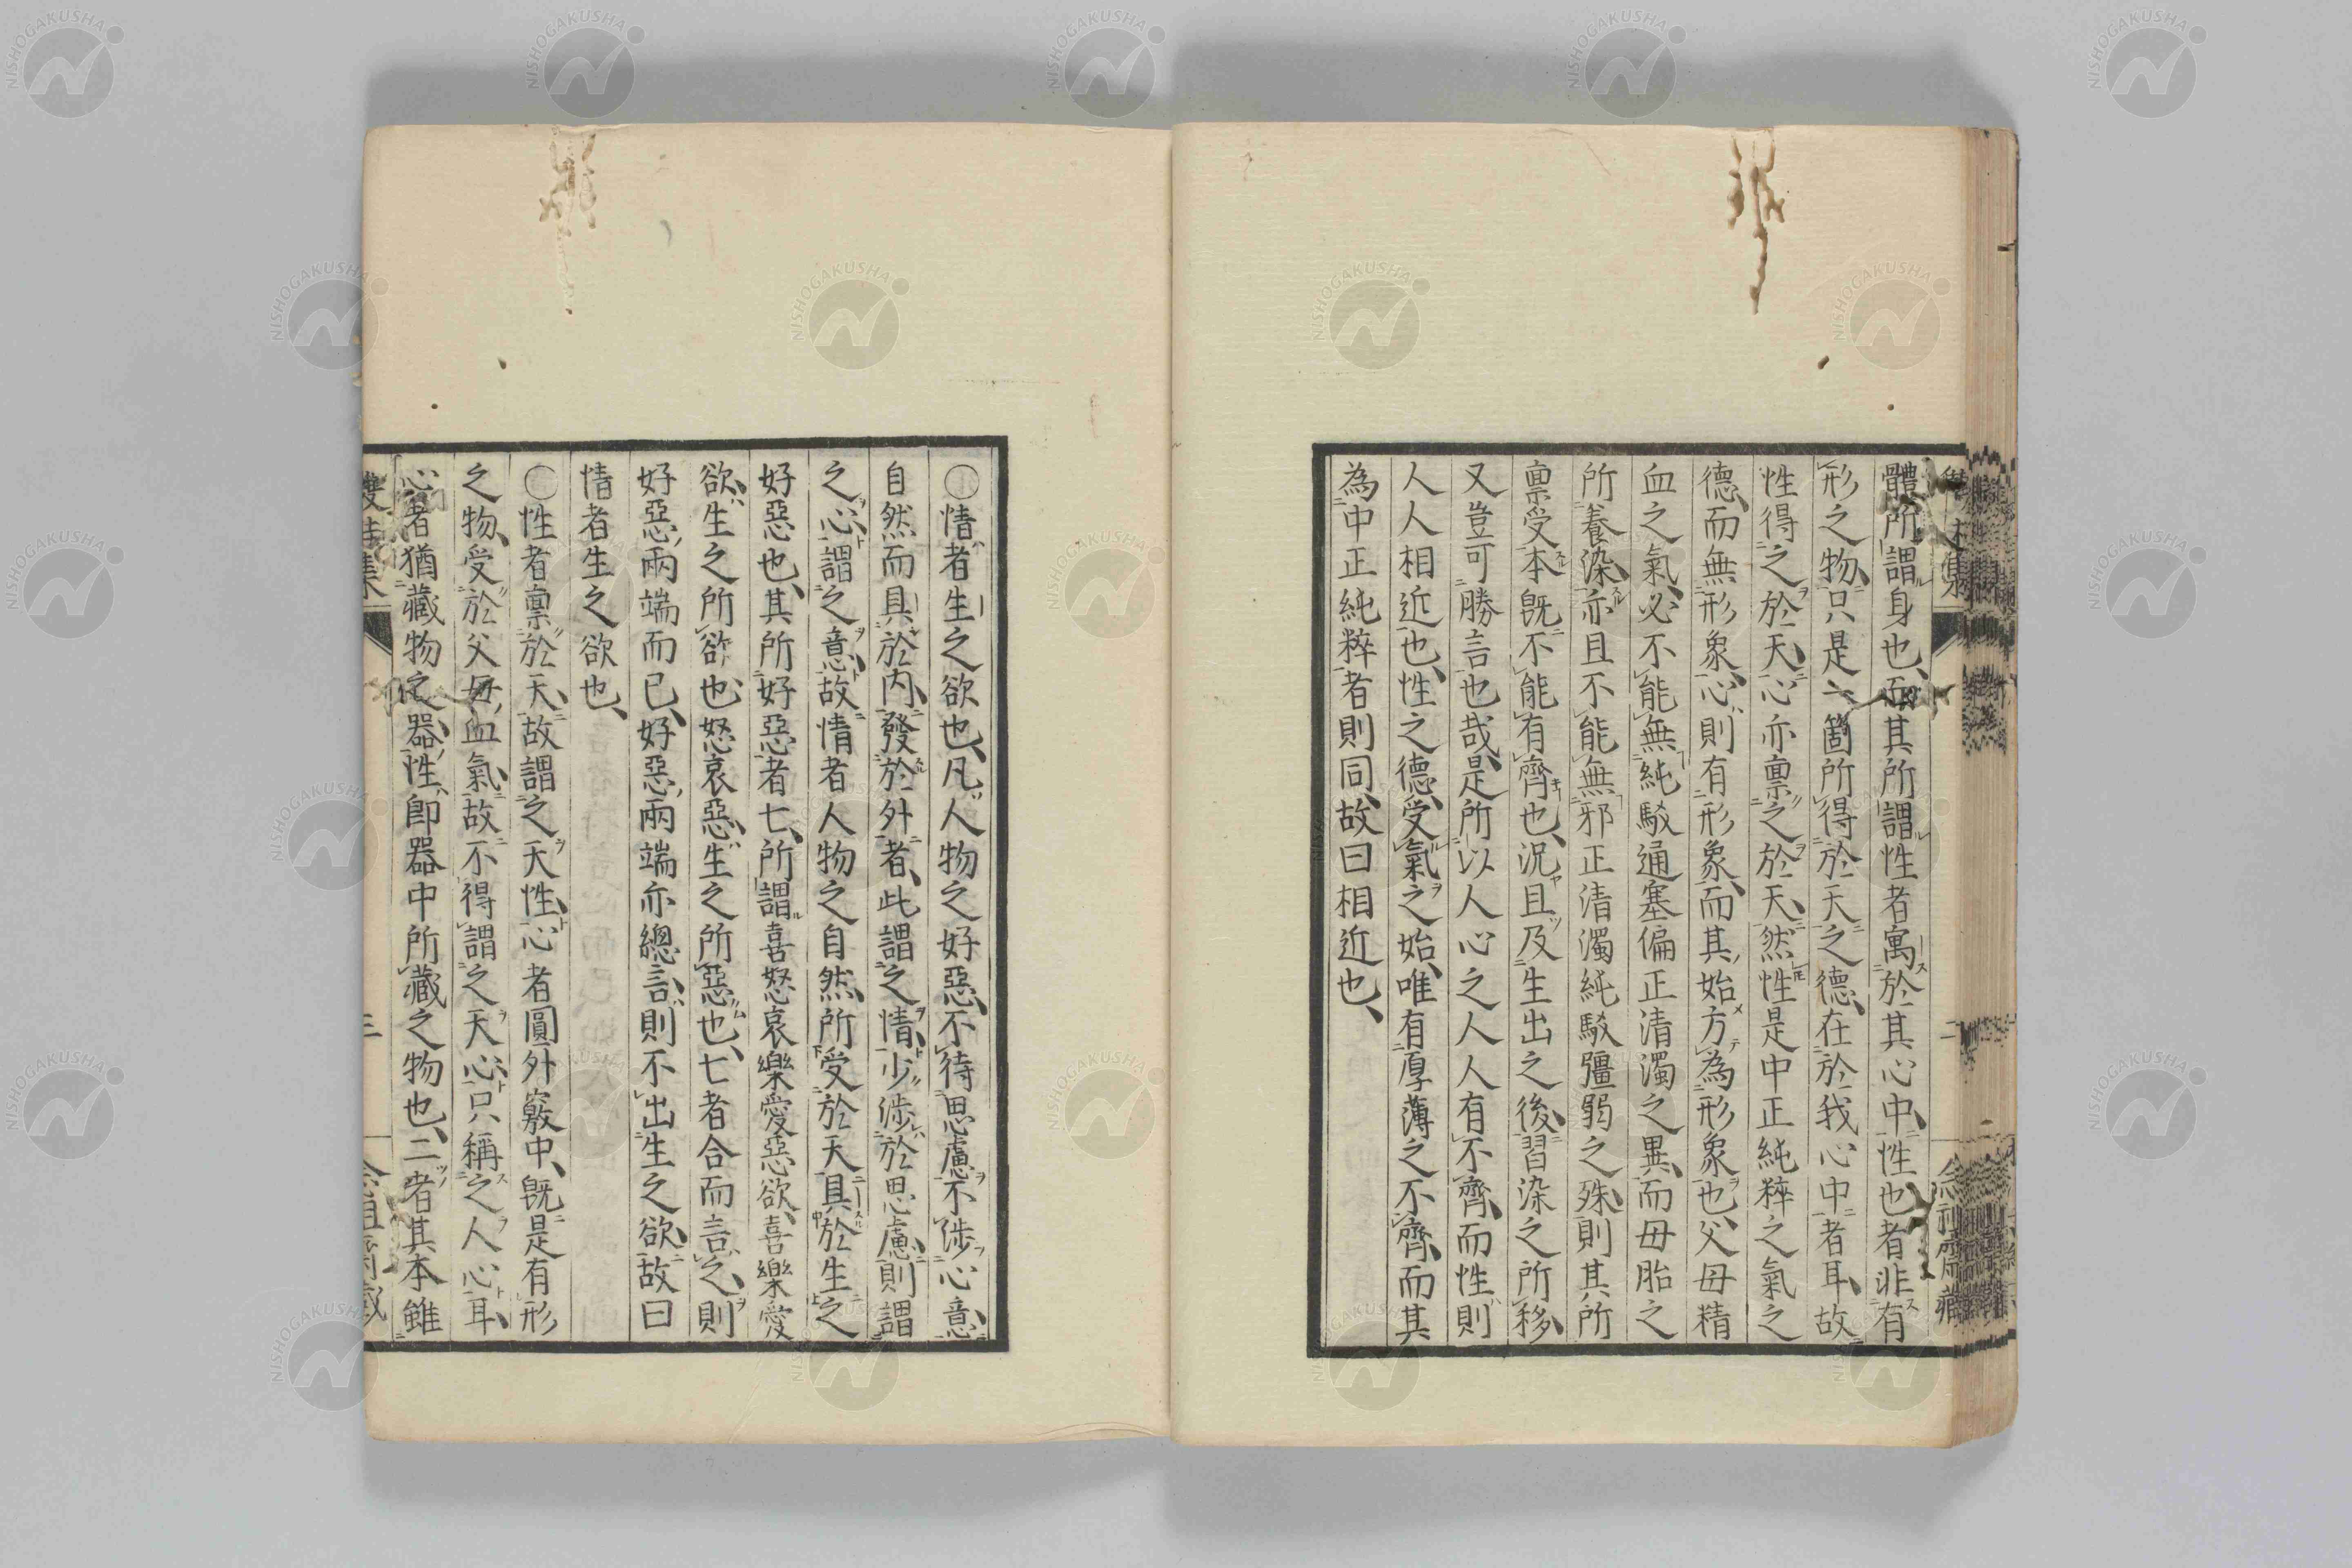 體所謂身也、而其所謂性者寓於其心中、性也者非有
形之物、只是一箇所得於天之德、在於我心中者耳、故
性得之於天、心亦稟之於天、然性是中正純粹之氣之
德、而無形象、心則有形象、而其始方為形象也、父母精
血之氣、必不能無純駁通塞偏正清濁之異、而母胎之
所養染、亦且不能無邪正清濁純駁彊弱之殊、則其所
稟受本既不能有齊也、況且及生出之後、習染之所移、
又豈可勝言也哉、是所以人心之人人有不齊、而性則
人人相近也、性之德、受氣之始、唯有厚薄之不齊、而其
為中正純粹者則同、故曰相近也、
〇情者生之欲也、凡人物之好惡、不待思慮、不涉心意、
自然而具於內、發於外者、此謂之情、少涉於思慮、則謂
之心、謂之意、故情者人物之自然、所受於天具於生之
好惡也、其所好惡者七、所謂喜怒哀樂愛惡欲、喜樂愛
欲、生之所欲也、怒哀惡、生之所惡也、七者合而言之、則
好惡兩端而已、好惡兩端亦總言、則不出生之欲、故曰
情者生之欲也、
〇性者稟於天、故謂之天性、心者圓外竅中、既是有形
之物、受於父母血氣、故不得謂之天心、只稱之人心耳、
心者猶藏物之器、性即器中所藏之物也、二者其本雖
雙桂集
三